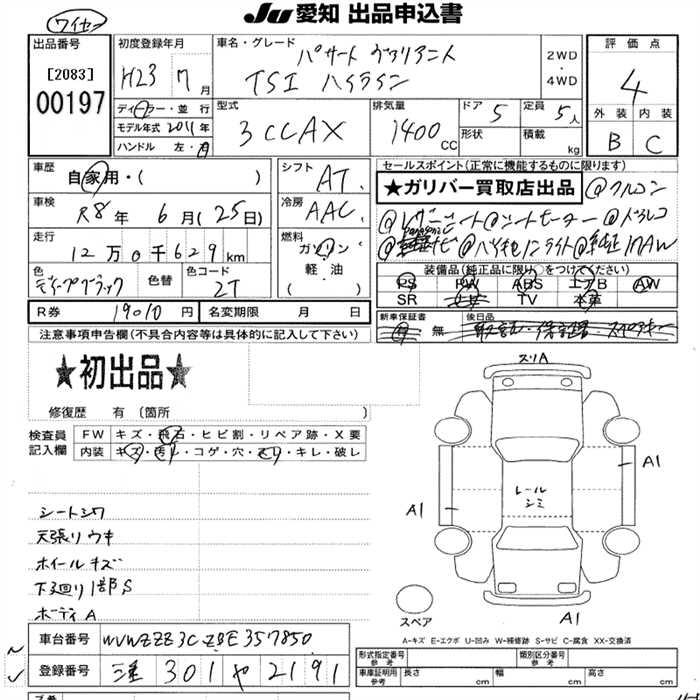 JU愛知 出品申込書
ワイセン
出品番号
[2083]
00197
初度登録年月
H23 7月
ディーラー・並行
モデル年式 2011年
ハンドル 左・右
車名・グレード
パサート ヴァリアント
TSI ハイライン
2WD
・
4WD
型式
3CCAX
排気量
1400 CC
ドア 5
定員 5人
形状
積載 kg
評価点
4
外装 内装
B C
車歴
自家用・( )
車検
R8年 6月(25日)
走行
12万0千629km
色
ディープブラック
色替
色コード
2T
シフト
AT
冷房
AAC
燃料
ガソリン
軽・油
( )
R券 19010円
名変期限 月 日
セールスポイント(正常に機能するものに限ります)
★ガリバー買取店出品
装備品(純正品に限り○をつけてください)
PS PW ABS エアB AW
SR TV 本革
新車保証書
有 無
後日品
注意事項申告欄(不具合内容等は具体的に記入して下さい)
★初出品★
修復歴 有 〔箇所 〕
検査員
記入欄
FW キズ・飛石・ヒビ割・リペア跡・X要
内装 キズ・汚レ・コゲ・穴・スレ・キレ・破レ
シートシワ
天張りウキ
ホイールキズ
下廻り1部S
ボディA
スリA
A1
A1
レール
シミ
A1
スペア
A-キズ E-エクボ U-凹み W-補修跡 S-サビ C-腐食 XX-交換済
車台番号 WVWZZZ3CZBE357850
登録番号 三重 301 や 2191
形式指定番号
参考
類別区分番号
参考
車庫証明用
参考
長さ cm
幅 cm
高さ cm